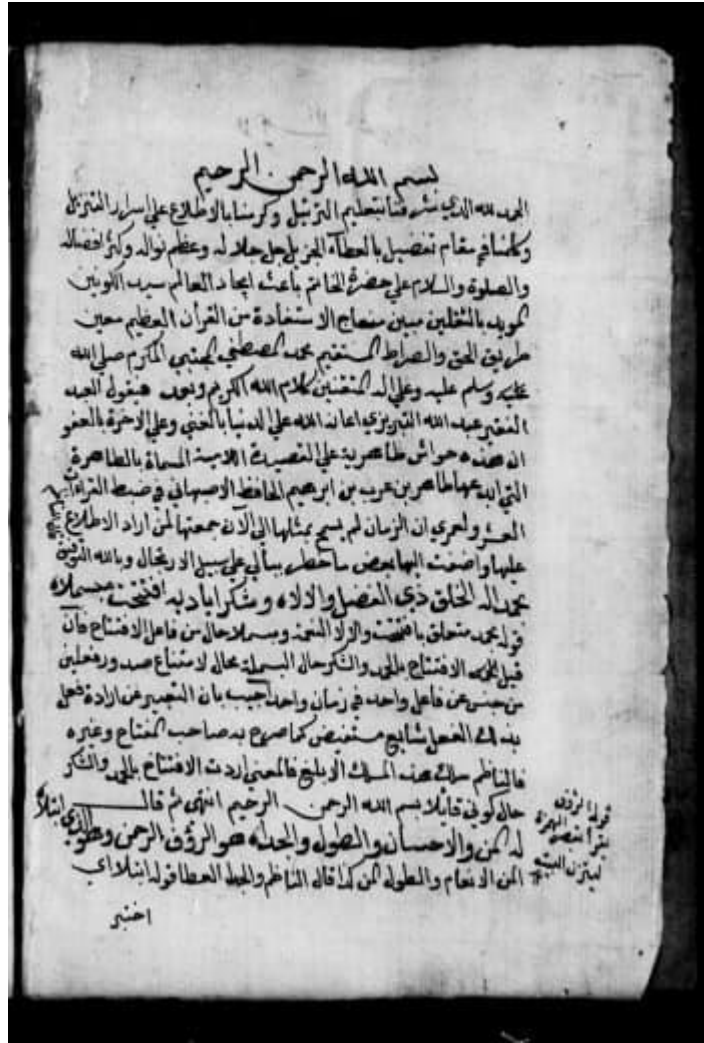 بسم الله الرحمن الرحيم
الحمد لله الذي شرفنا بتعليم الترتيل وكرمنا بالاطلاع على اسرار التنزيل
في مقام تفضيل بالعطآء الجزيل جل جلاله وعظم نواله وكثر افضاله
والصلوة والسلام علي حضرة الخاتم باعث ايجاد العالم سيد الكونين
المويد بالثقلين مبين منهاج الاستفادة من القرأن العظيم معين
طريق الحق والصراط المستقيم محمد المصطفي المجتبي المكرم صلي الله
عليه وسلم عليه وعلي اله المتقنين كلام الله الكريم وبعد فيقول العبد
الفقير عبد الله التبريزي اعانه الله علي الدنيا بالغني وعلي الاخرة بالعفو
ان هذه حواش طاهرية علي القصيدة اللامية المسماة بالطاهرة
التي ابدعها طاهر بن عرب بن ابرهيم الحافظ الاصبهاني في ضبط القراءات
العشر ولعمري ان الزمان لم يسمح بمثلها الي الآن جمعتها لمن اراد الاطلاع
عليها واضفت اليها بعض ما خطر ببالي علي سبيل الارتجال وبالله التوفيق
بحمد اله الخلق ذي الفضل والالاه وشكر اياديه افتتحت مبسملاه
قوله بحمد متعلق بافتتحت والالا النعمة ومبسملا حال من فاعل الافتتاح فان
قيل الافتتاح بالحمد والشكر حال البسملة محال لامتناع صدور فعلين
من جنس عن فاعل واحد في زمان واحد اجيب بان التعبير عن ارادة فعل
بذلك الفعل شايع مستفيض كما صرح به صاحب المفتاح وغيره
فالناظم سلك هذا المسلك الابلغ فالمعني اردت الافتتاح بالحمد والشكر
حال كوني قايلا بسم الله الرحمن الرحيم انتهى ثم قال
له المن والاحسان والطول والجداه هو الرؤف الرحمن وطول الذي ابتلاه
المن الانعام والطول المن كذا قال الناظم والجدا العطا قوله ابتلا اي
اختبر
قوله الرؤف
يقرأ بقصر الهمزة
ليتزن البيت